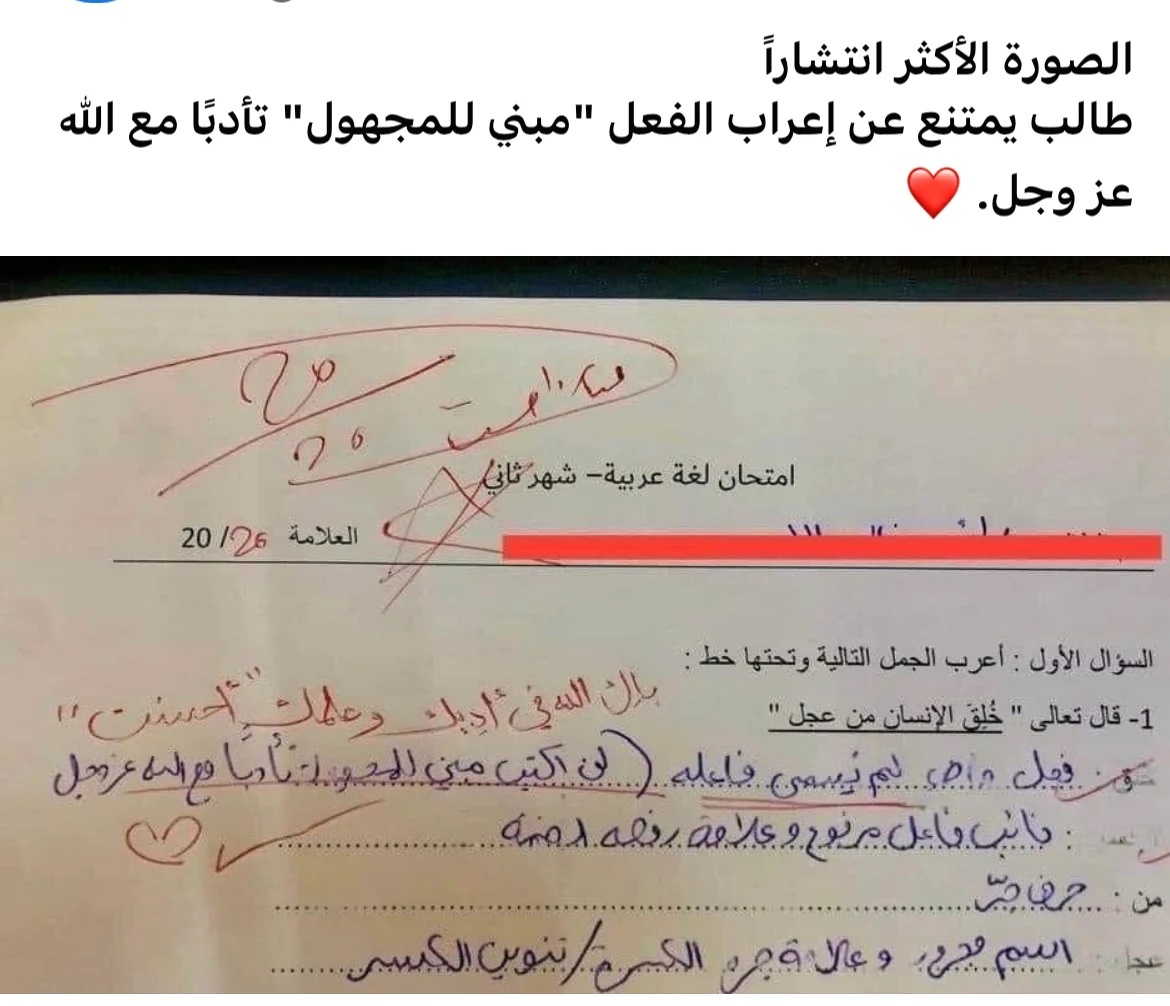 الصورة الأكثر انتشاراً
طالب يمتنع عن إعراب الفعل "مبني للمجهول" تأدبًا مع الله
عز وجل. ❤️
أحسنت
20
امتحان لغة عربية– شهر ثاني
العلامة 20/ 20
السؤال الأول : أعرب الجمل التالية وتحتها خط :
بارك الله في أدبك وعلمك "أحسنت"
1- قال تعالى " خُلِقَ الإنسان من عجل "
فعل ماضٍ لم يُسمى فاعله (لن اكتب مبني للمجهول تأدبًا مع الله عز وجل
: نائب فاعل مرفوع وعلامة رفعه الضمة
من : حرف جرّ
عجل : اسم مجرور وعلامة جره الكسرة/تنوين الكسر